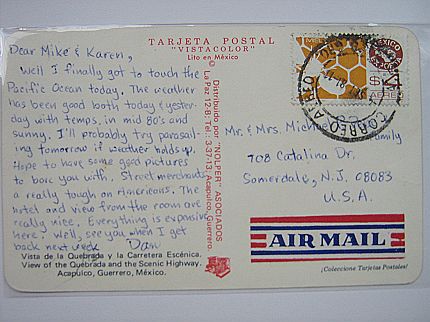 TARJETA POSTAL
"VISTACOLOR"
Lito en México
Dear Mike & Karen,
Well I finally got to touch the
Pacific Ocean today. The weather
has been good both today & yester-
day with temps. in mid 80's and
sunny. I'll probably try parasail-
ing tomorrow if weather holds up.
Hope to have some good pictures
to bore you with. Street merchants
a really tough on Americans. The
hotel and view from the room are
really nice. Everything is expensive
here. Well, see you when I get
back next week Dan
Vista de la Quebrada y la Carretera Escénica.
View of the Quebrada and the Scenic Highway.
Acapulco, Guerrero, México.
Distribuido por "NOLPER" ASOCIADOS
La Paz 12-B Tel. 3-37-13, Acapulco, Guerrero.
MEXICO
EXPORTA
CORREO AEREO
Mr. & Mrs.
Family
708 Catalina Dr.
Somerdale, N.J. 08083
U.S.A.
AIR MAIL
¡Coleccione Tarjetas Postales!